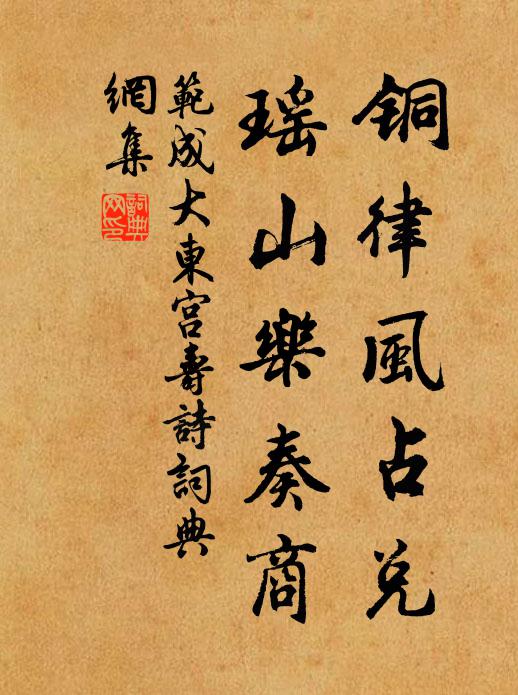 铜律風占兑
瑶山樂奏商
範成大東宫壽詩詞典
網集
詞典
网印